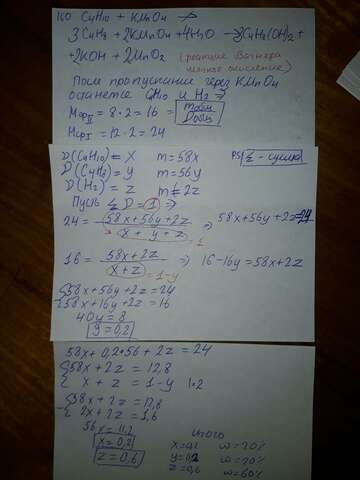 160 C4H10 + KMnO4 ↛
3C4H8 + 2KMnO4 + 4H2O → 3C4H8(OH)2 +
+ 2KOH + 2MnO2 (реакция Вагнера
мягкое окисление)
После пропускания через KMnO4
останется C4H10 и H2 ⇒
MсрII = 8·2 = 16 =
MсрI = 12·2 = 24
D(C4H10) = x m = 58x PS/ Σ - сумма
D(C4H8) = y m = 56y
D(H2) = z m = 2z
Пусть Σ D = 1 ⇒
24 = 58x + 56y + 2z / x + y + z = 1 ⇒ 58x + 56y + 2z = 24
16 = 58x + 2z / x + z = 1-y ⇒ 16 - 16y = 58x + 2z
58x + 56y + 2z = 24
58x + 16y + 2z = 16
40y = 8
y = 0,2
58x + 0,2·56 + 2z = 24
58x + 2z = 12,8
x + z = 1 - y |·2
58x + 2z = 12,8
2x + 2z = 1,6
56x = 11,2
x = 0,2
z = 0,6
итого
x = 0,2 w = 20%
y = 0,2 w = 20%
z = 0,6 w = 60%